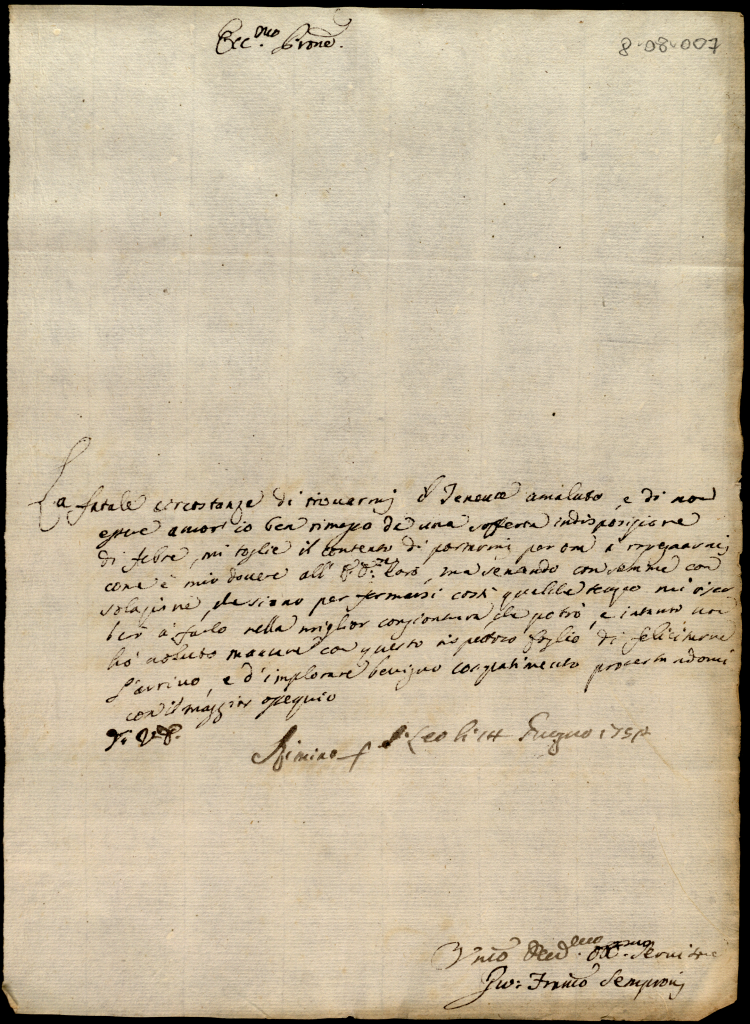 Ecc.mo Prone.
8-08-007
La fatale circostanza di trovarmi il Tenente amalato, e di non
esser ancor io ben rimesso da una sofferta indisposizione
di febre, mi toglie il contento di portarmi per ora a rassegnarmi
come è mio dovere all' Loro, ma sentendo con somma con
solazione, che siano per fermarsi costì qualche tempo mi riser
berò à farlo nella miglior congiontura che potrò, e intanto non
hò voluto mancare con questo rispettoso foglio di felicitarne
l'arrivo, e d'implorare benigno compatimento protestandomi
con il maggior ossequio
Di V.E.
Rimino S. Leo li 14 Giugno
Servitore
Gio: Franco Semproni